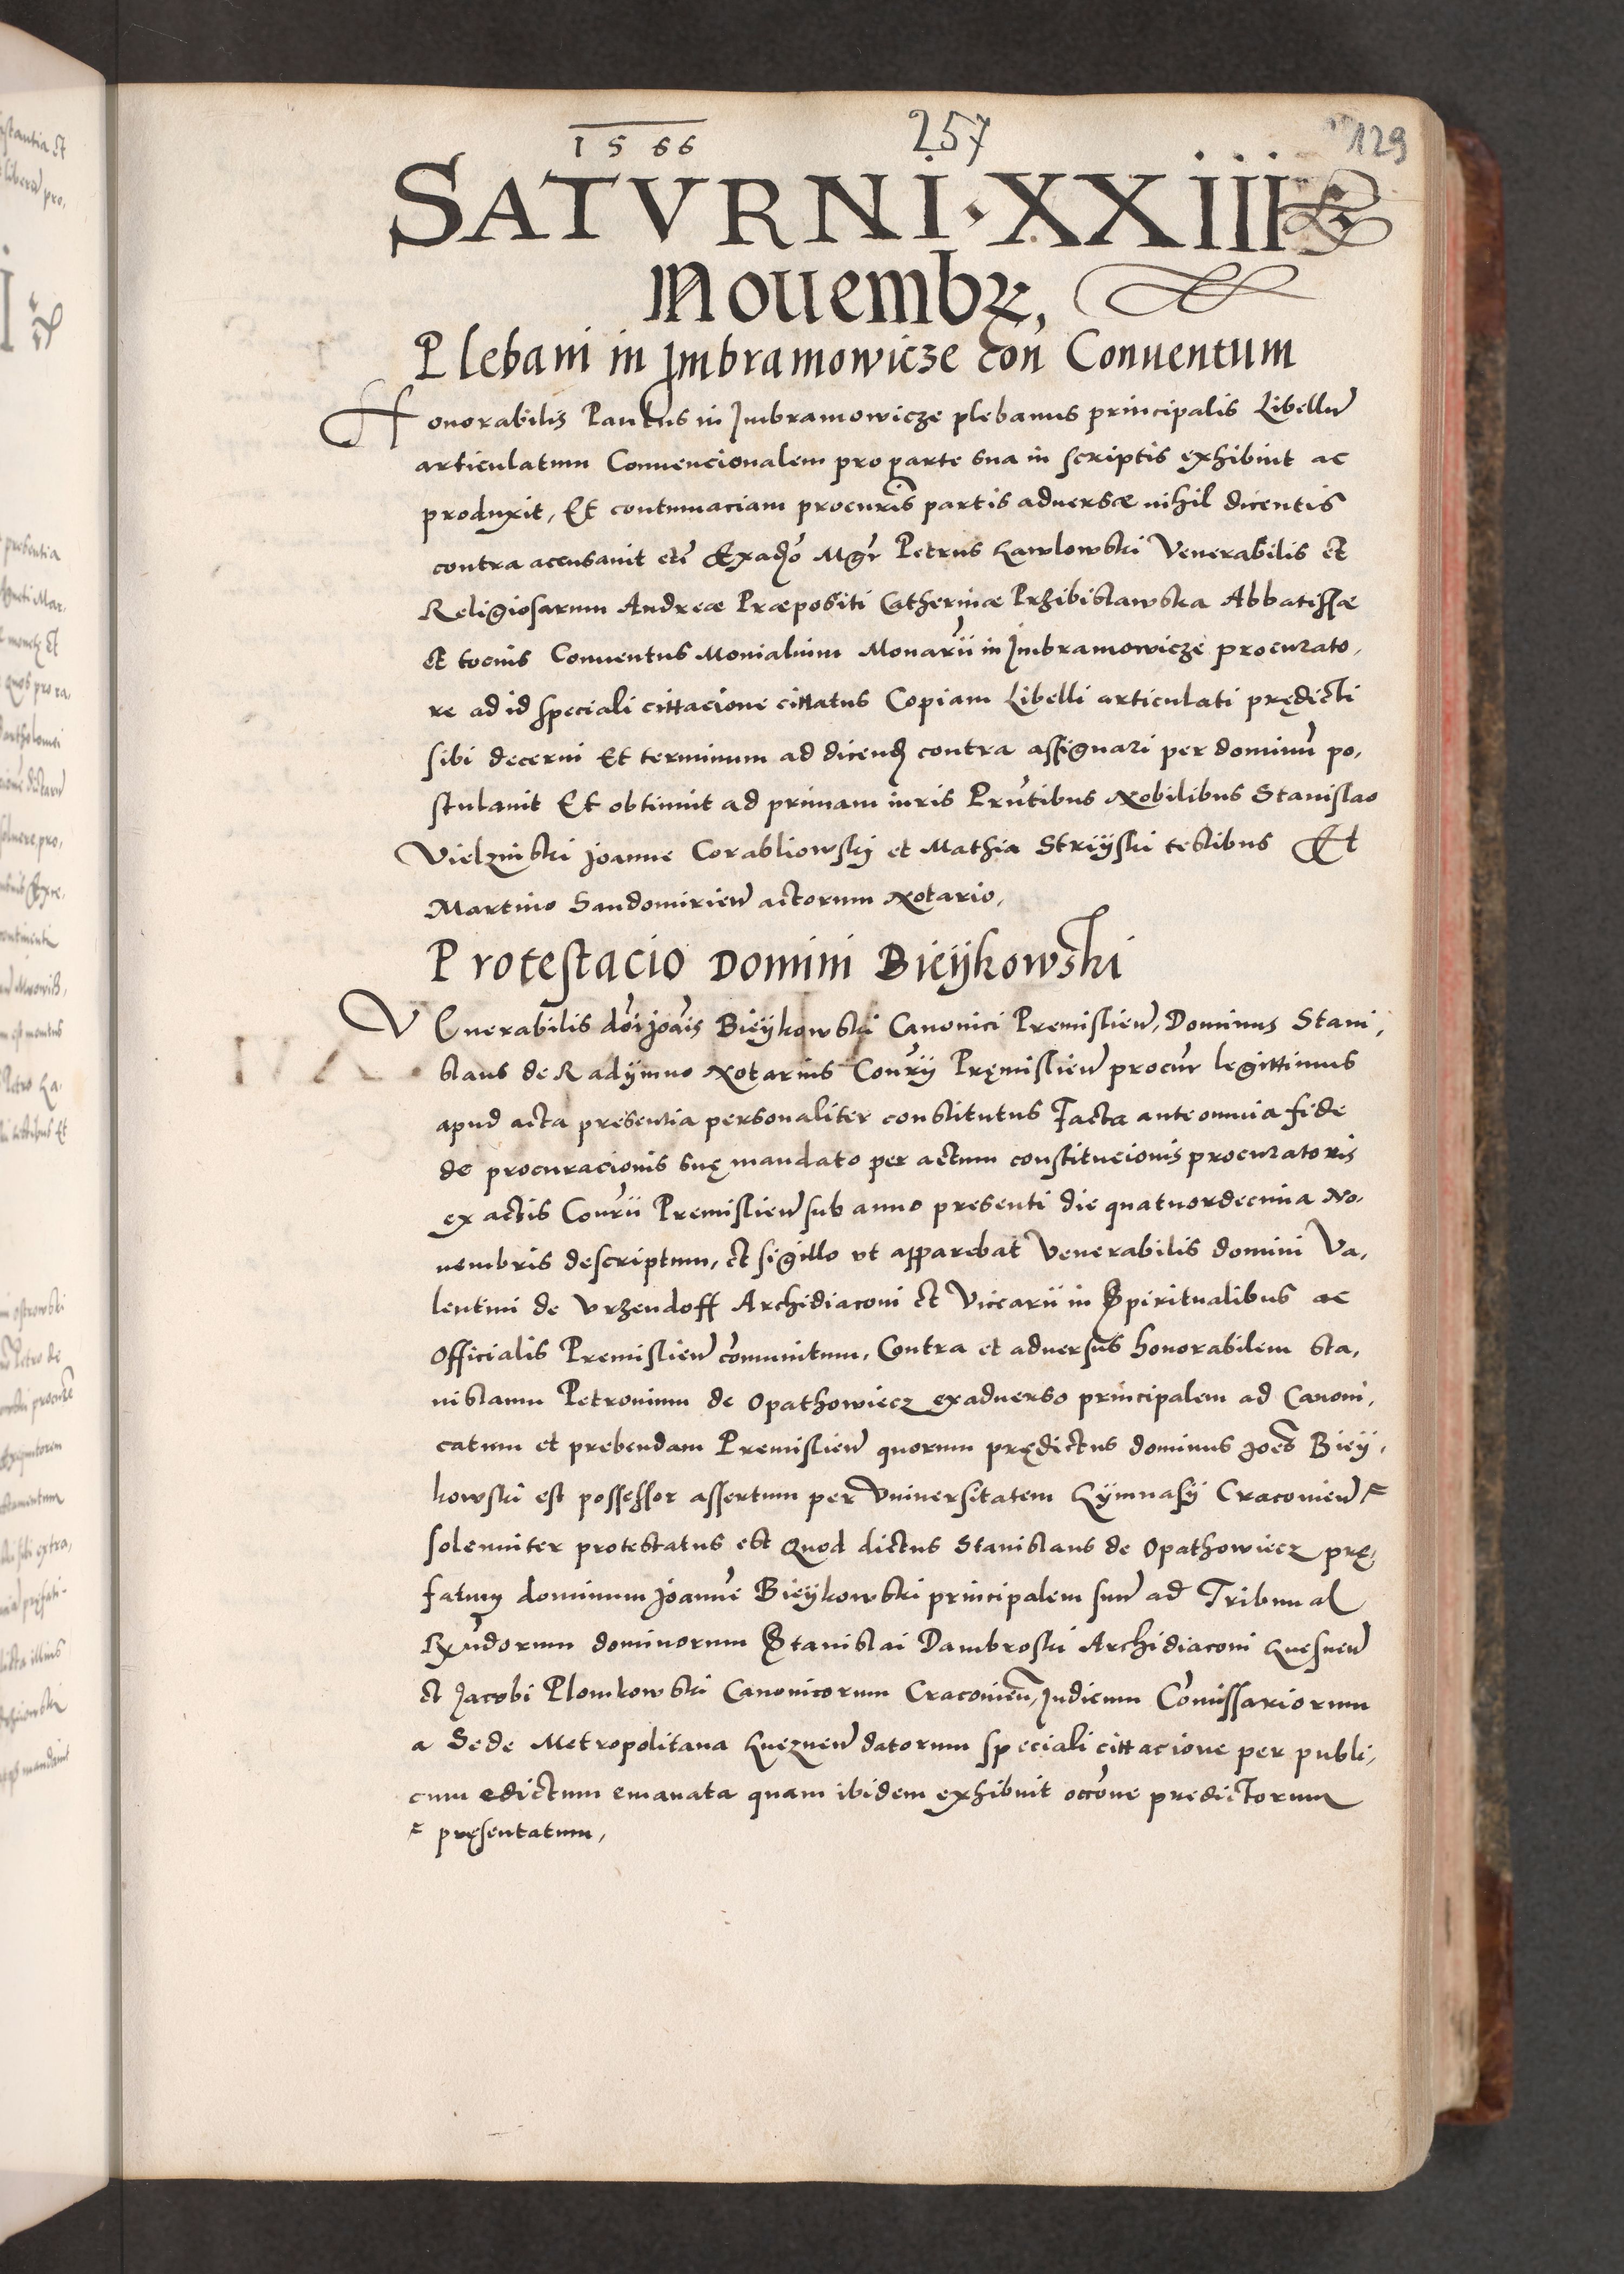 1566
257
129
SATVRNI · XXIII
Nouembr,
Plebani in Jmbramowicze con Conuentum
Honorabilis Paulus in Jmbramowicze plebanus principalis Libellu͂
articulatum Conuencionalem pro parte sua in scriptis exhibuit ac
produxit, Et contumaciam procuris̃ partis aduersæ nihil dicentis
contra accusauit etc̃ Exaduõ Mgr̃ Petrus Gawlowski Venerabilis et
Religiosarum Andreæ Præpositi Catherinæ Przibislawska Abbatissæ
et tocius Conuentus Monialium Monarij̃ in Jmbramowicze procurato,
re ad id speciali cittacione cittatus Copiam Libelli articulati prędicti
sibi decerni Et terminum ad dicend contra assignari per dominu͂ po,
stulauit Et obtinuit ad primam iuris Prũtibus Nobilibus Stanislao
Vielzinski Joanne Corabliowskj et Mathia Strijski testibus Et
Martino Sandomirien̄ actorum Notario,
Protestacio Domini Bieijkowski
VEnerabilis dõi Joãis Bieijkowski Canonici Premislien̄, Dominus Stani,
slaus de Radijmno Notarius Conr̃ij Pręmislien̄ procur̃ legittimus
apud acta presentia personaliter constitutus Facta ante omnia fide
de procuracionis suę mandato per actum constitucionis procuratoris
ex actis Conr̃ii Premislien̄ sub anno presenti die quatuordecima No,
uembris descriptum, et sigillo vt apparebat Venerabilis domini Va,
lentini de Vrzendoff Archidiaconi et Vicearii in Spiritualibus ac
Officialis Premislien̄ cõmunitum, Contra et aduersus honorabilem Sta,
nislaum Petronium de Opathowiecz exaduerso principalem ad Canoni,
catum et prebendam Premislien̄ quorum prędictus dominus Joẽs Bieij,
kowski est possessor assertum per Vniuersitatem Gijmnasij Cracouien̄
solenniter protestatus est Quod dictus Stanislaus de Opathowiecz prę,
fatum dominum Joannẽ Bieijkowski principalem suu͂ ad Tribunal
Rx̃ndorum dominorum Stanislai Dambroski Archidiaconi Gnesnen̄
et Jacobi Plomkowski Canonicorum Cracouien̄, Judicum Cõmissariorum
a Sede Metropolitana Gneznen̄ datorum speciali cittacione per publi,
cum edictum emanata quam ibidem exhibuit occõne predictorum
pręsentatum,